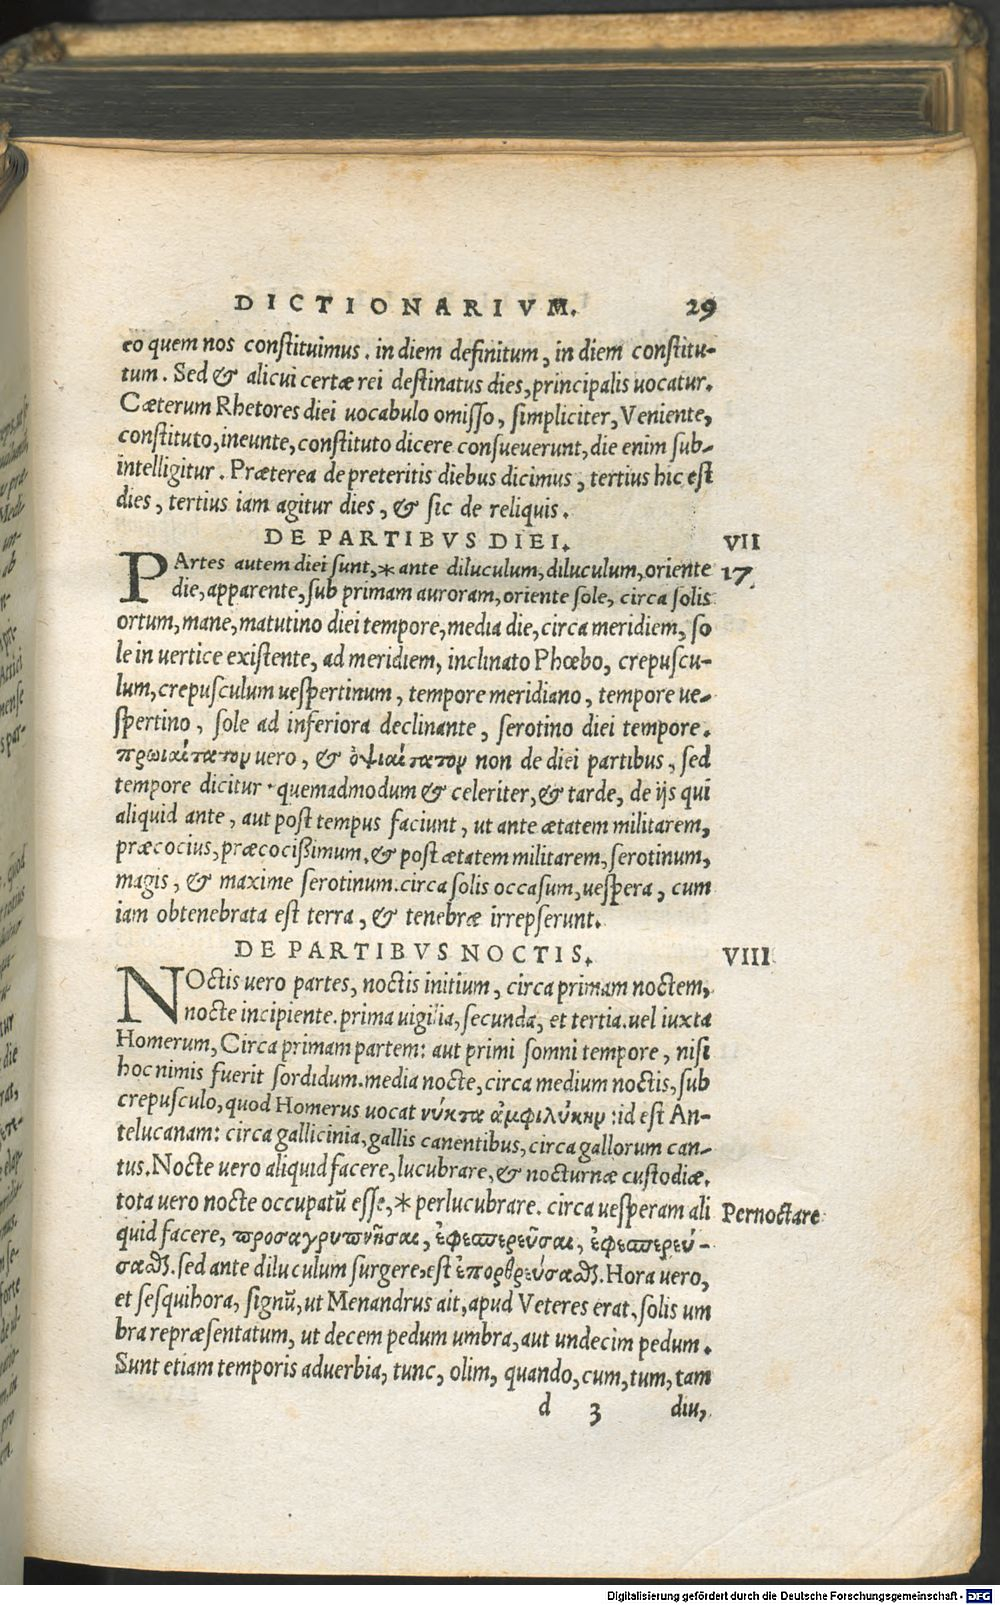 DICTIONARIVM. 29
eo quem nos constituimus. in diem definitum, in diem constitu-
tum. Sed & alicui certæ rei destinatus dies, principalis uocatur.
Cæterum Rhetores diei uocabulo omisso, simpliciter, Veniente,
constituto, ineunte, constituto dicere consueuerunt, die enim sub-
intelligitur. Præterea de preteritis diebus dicimus, tertius hic est
dies, tertius iam agitur dies, & sic de reliquis.
DE PARTIBVS DIEI. VII
PArtes autem diei sunt, * ante diluculum, diluculum, oriente 17
die, apparente, sub primam auroram, oriente sole, circa solis
ortum, mane, matutino diei tempore, media die, circa meridiem, so
le in uertice existente, ad meridiem, inclinato Phœbo, crepuscu-
lum, crepusculum uespertinum, tempore meridiano, tempore ue-
spertino, sole ad inferiora declinante, serotino diei tempore.
πρωιαίτατον uero, & ὀψιαίτατον non de diei partibus, sed
tempore dicitur. quemadmodum & celeriter, & tarde, de ijs qui
aliquid ante, aut post tempus faciunt, ut ante ætatem militarem,
præcocius, præcocißimum, & post ætatem militarem, serotinum,
magis, & maxime serotinum. circa solis occasum, uespera, cum
iam obtenebrata est terra, & tenebræ irrepserunt.
DE PARTIBVS NOCTIS. VIII
NOctis uero partes, noctis initium, circa primam noctem,
nocte incipiente. prima uigilia, secunda, et tertia. uel iuxta
Homerum, Circa primam partem: aut primi somni tempore, nisi
hoc nimis fuerit sordidum. media nocte, circa medium noctis, sub
crepusculo, quod Homerus uocat νύκτα ἀμφιλύκην : id est An-
telucanam: circa gallicinia, gallis canentibus, circa gallorum can-
tus. Nocte uero aliquid facere, lucubrare, & nocturnæ custodiæ.
tota uero nocte occupatū esse, * perlucubrare. circa uesperam ali Pernoctare
quid facere, προσαγρυπνῆσαι, ἐφεσπερεῦσαι, ἐφεσπερεύ-
σαϑζ. sed ante diluculum surgere, est ἐπορθρεύσαϑζ. Hora uero,
et sesquihora, signū, ut Menandrus ait, apud Veteres erat, solis um
bra repræsentatum, ut decem pedum umbra, aut undecim pedum.
Sunt etiam temporis aduerbia, tunc, olim, quando, cum, tum, tam
d 3 diu,
Digitalisierung gefördert durch die Deutsche Forschungsgemeinschaft - DFG